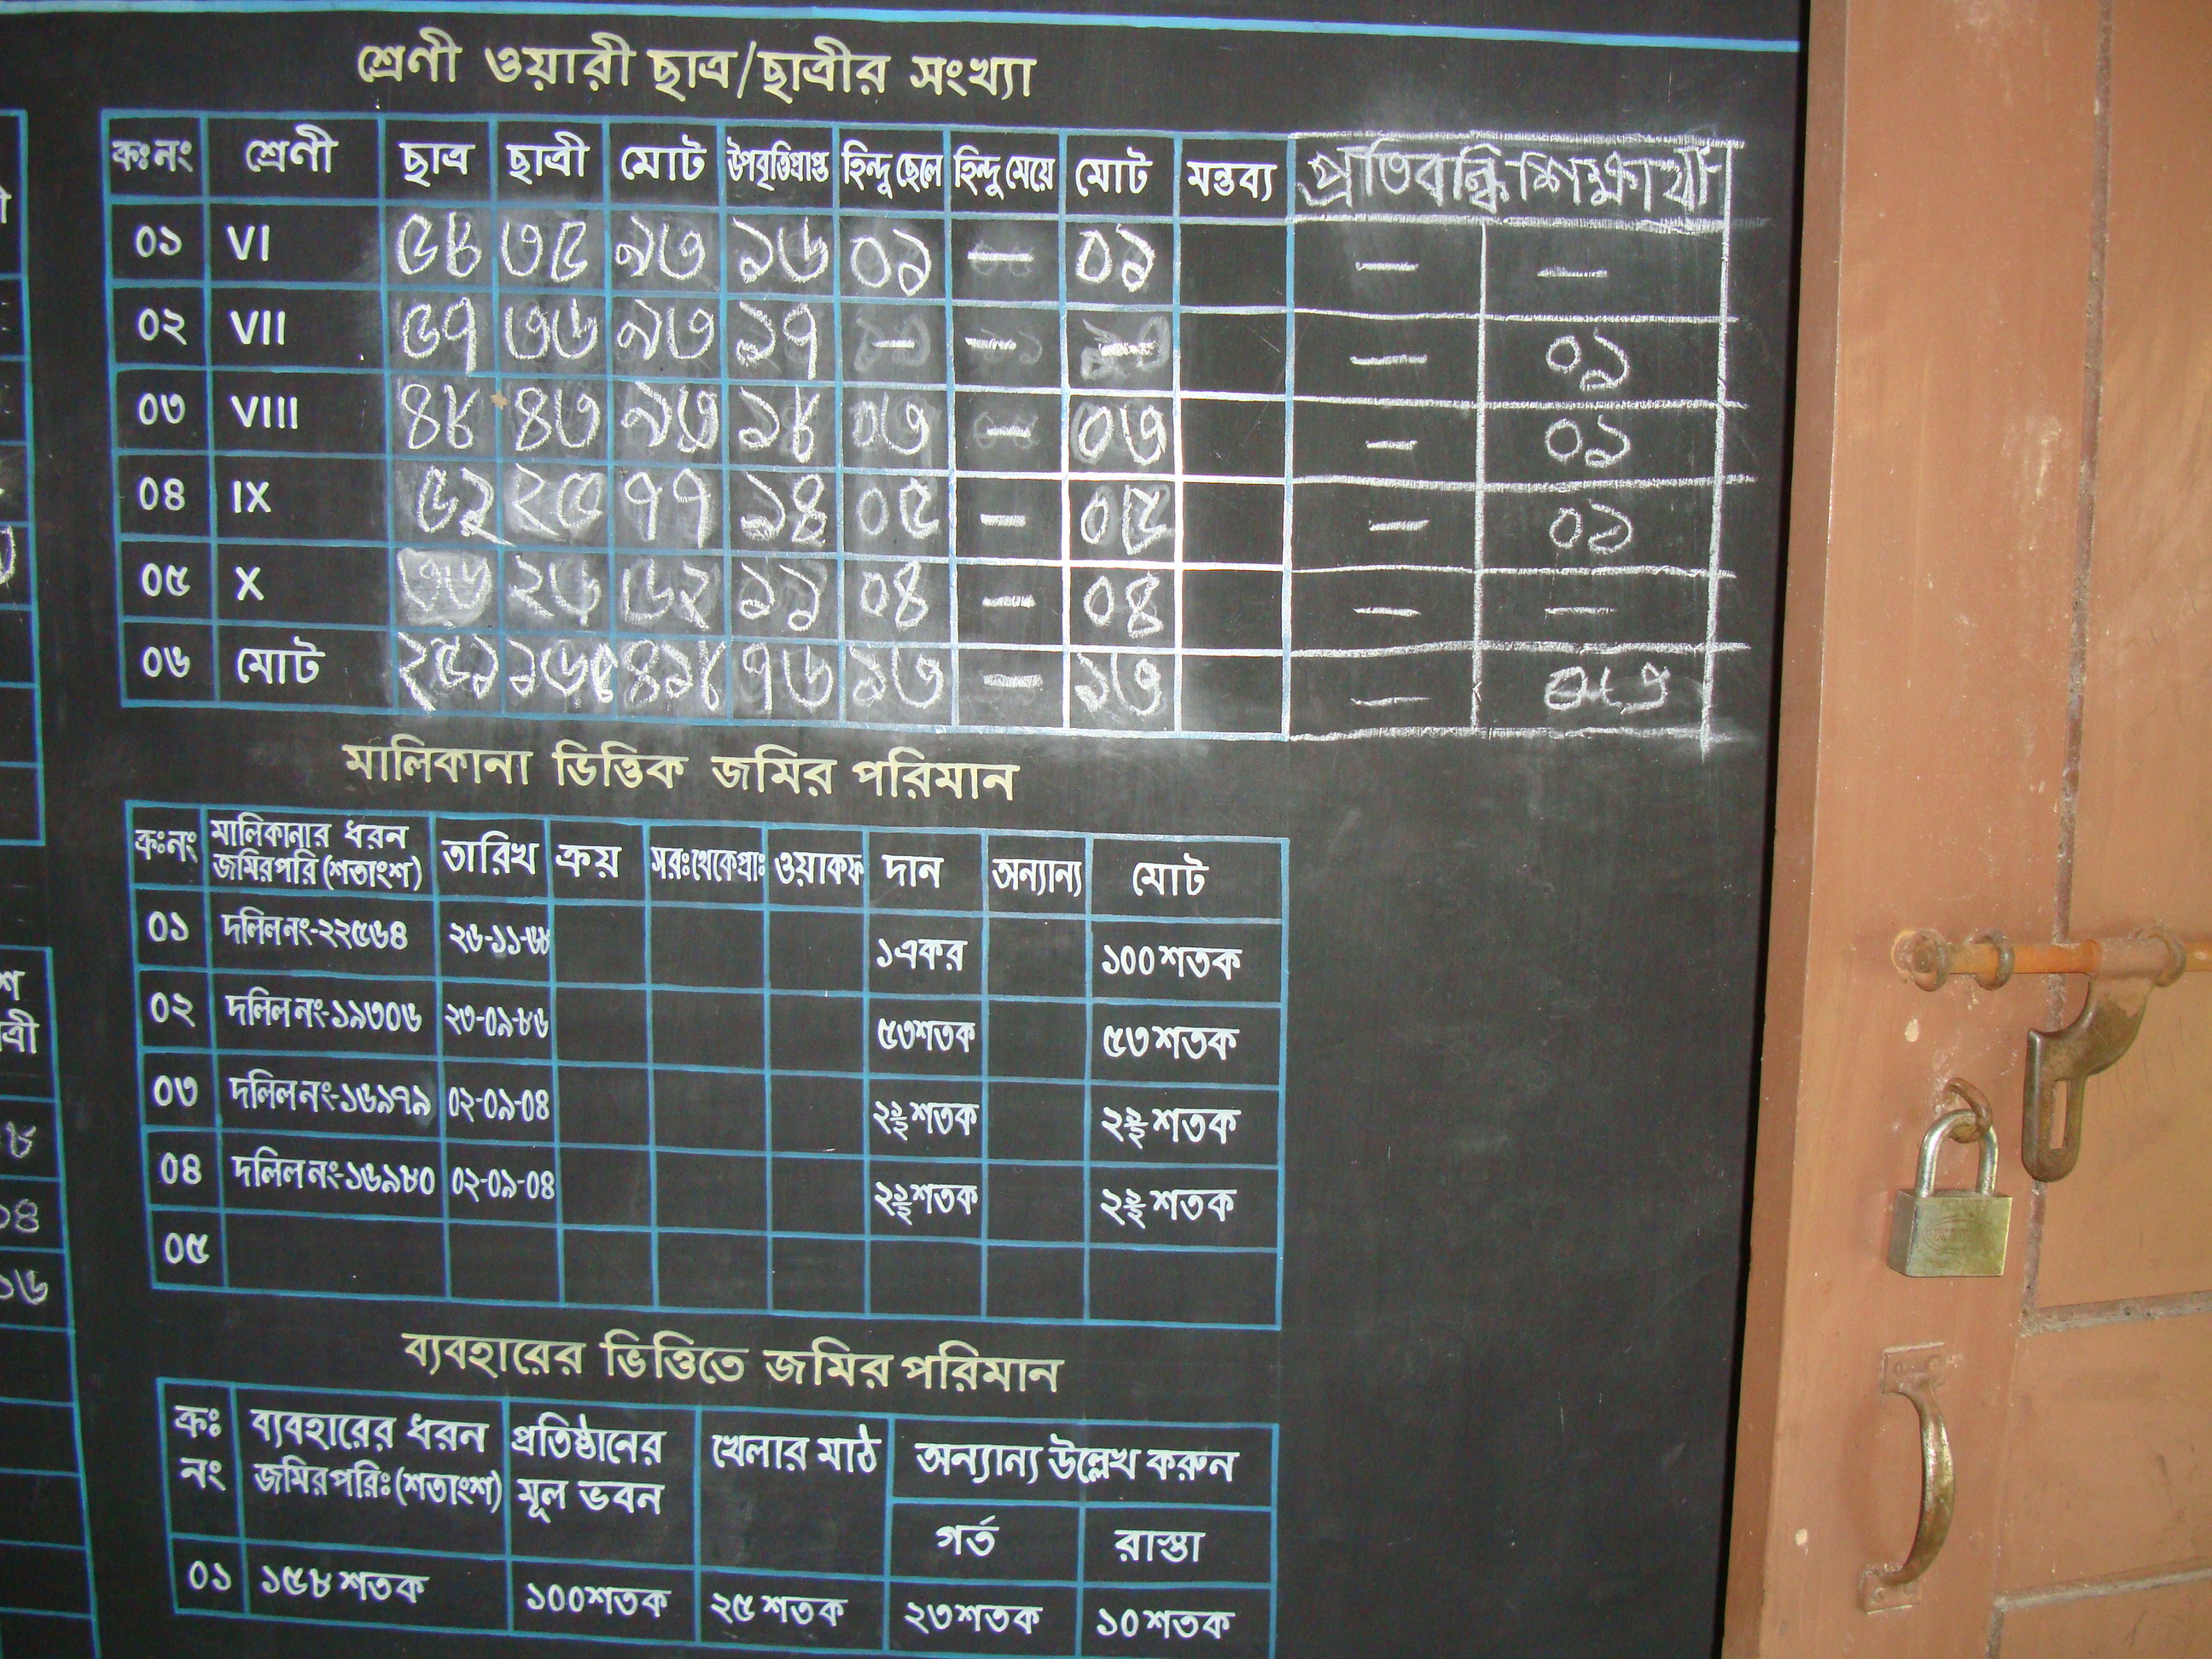 শ্রেণী ওয়ারী ছাত্র/ছাত্রীর সংখ্যা
ক্রঃনং শ্রেণী ছাত্র ছাত্রী মোট উপবৃত্তিপ্রাপ্ত হিন্দু ছেলে হিন্দু মেয়ে মোট মন্তব্য প্রতিবন্ধি শিক্ষার্থী
০১ VI ৫৮ ৩৫ ৯৩ ১৬ ০১ — ০১ — —
০২ VII ৫৭ ৩৬ ৯৩ ১৭ — — — — ০১
০৩ VIII ৪৮ ৪৩ ৯১ ১৮ ০৩ — ০৩ — ০১
০৪ IX ৫২ ২৫ ৭৭ ১৪ ০৫ — ০৫ — ০১
০৫ X ৩৬ ২৬ ৬২ ১১ ০৪ — ০৪ — —
০৬ মোট ২৫১ ১৬৫ ৪১৮ ৭৬ ১৩ — ১৩ — ০৩
মালিকানা ভিত্তিক জমির পরিমান
ক্রঃনং মালিকানার ধরন জমিরপরি (শতাংশ) তারিখ ক্রয় সরঃথেকেপ্রাঃ ওয়াকফ দান অন্যান্য মোট
০১ দলিল নং-২২৫৬৪ ২৬-১১-৬৮ ১একর ১০০ শতক
০২ দলিল নং-১৯৩০৬ ২৩-০৯-৮৬ ৫৩শতক ৫৩ শতক
০৩ দলিল নং-১৬৯৭৯ ০২-০৯-০৪ ২১/২ শতক ২১/২ শতক
০৪ দলিল নং-১৬৯৮০ ০২-০৯-০৪ ২১/২ শতক ২১/২ শতক
০৫
ব্যবহারের ভিত্তিতে জমির পরিমান
ক্রঃ নং ব্যবহারের ধরন জমিরপরিঃ (শতাংশ) প্রতিষ্ঠানের মূল ভবন খেলার মাঠ অন্যান্য উল্লেখ করুন
গর্ত রাস্তা
০১ ১৫৮ শতক ১০০শতক ২৫ শতক ২৩ শতক ১০ শতক